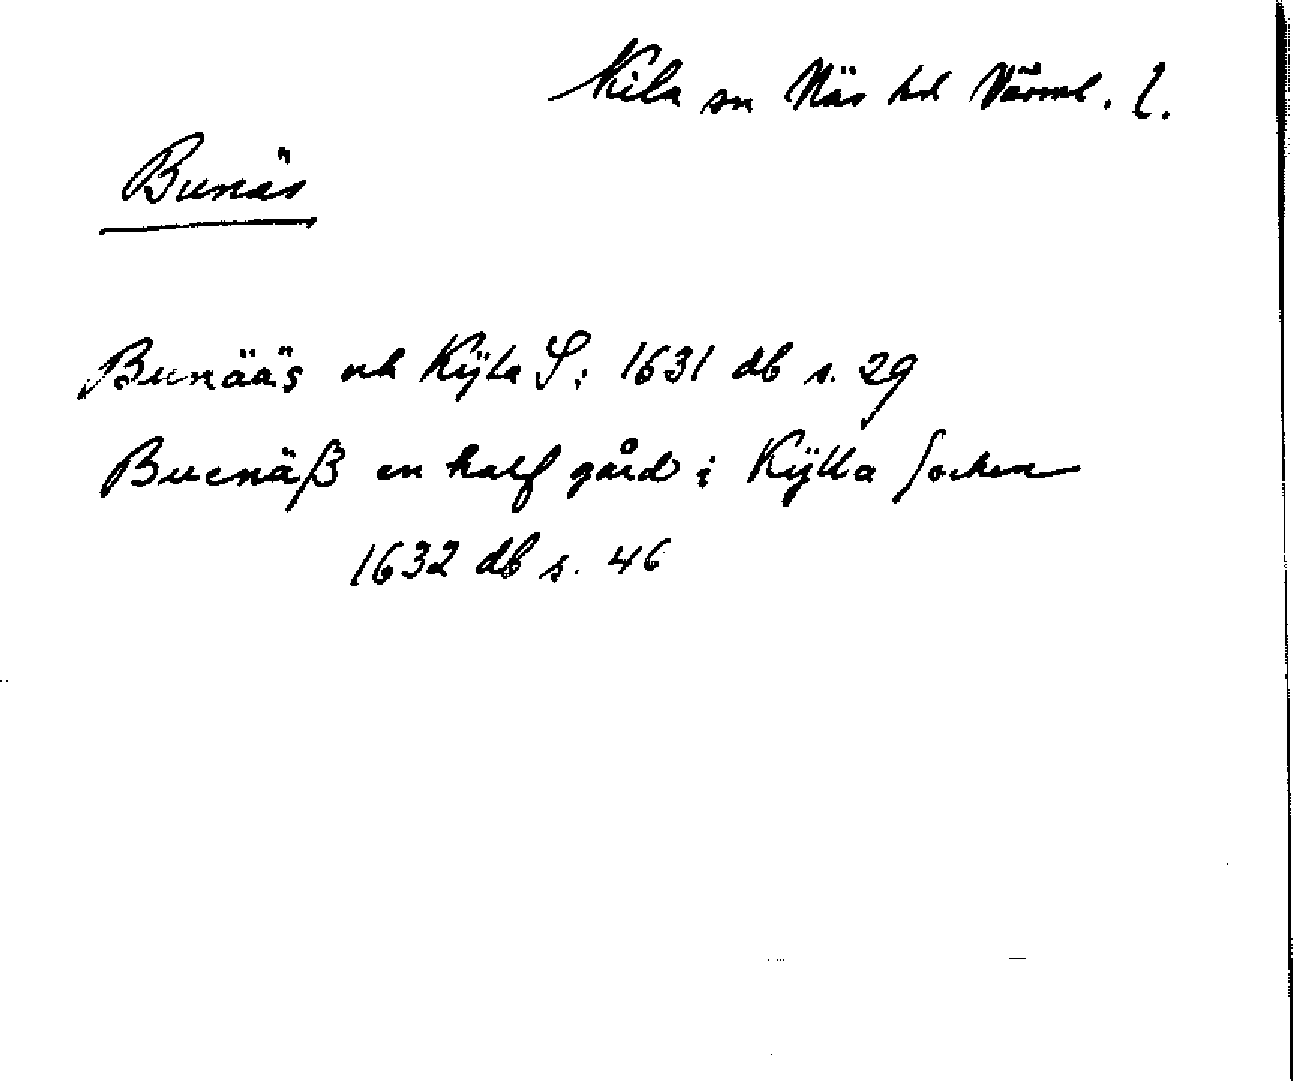 Kila sn Näs hd Värml. l.
Bunäs
Bunääs uk Kÿla S: 1631 db s. 29
Bucnäß en half gård i Kÿlla Sochen
1632 db s. 46